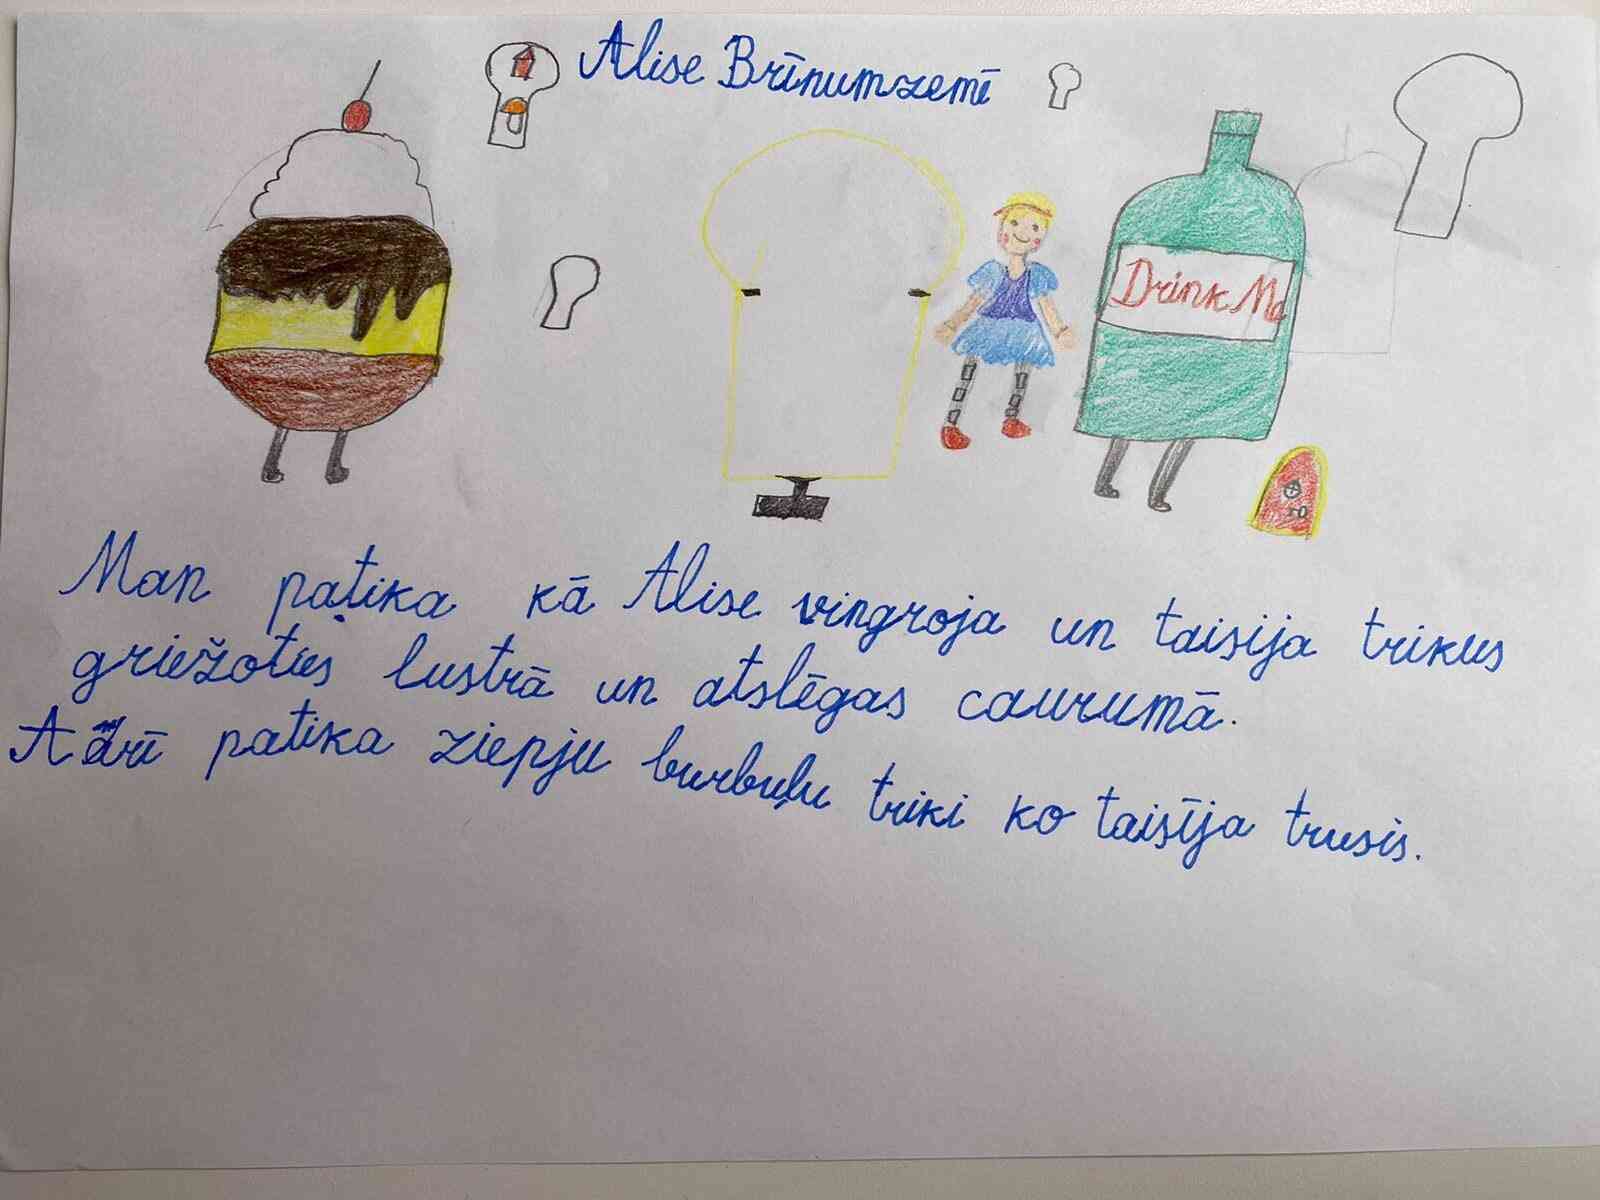 Alise Brīnumzemē
Drink Me
Man patika kā Alise vingroja un taisija trikus
griežoties lustrā un atslēgas caurumā.
Arī patika ziepju burbuļu triki ko taisīja trusis.